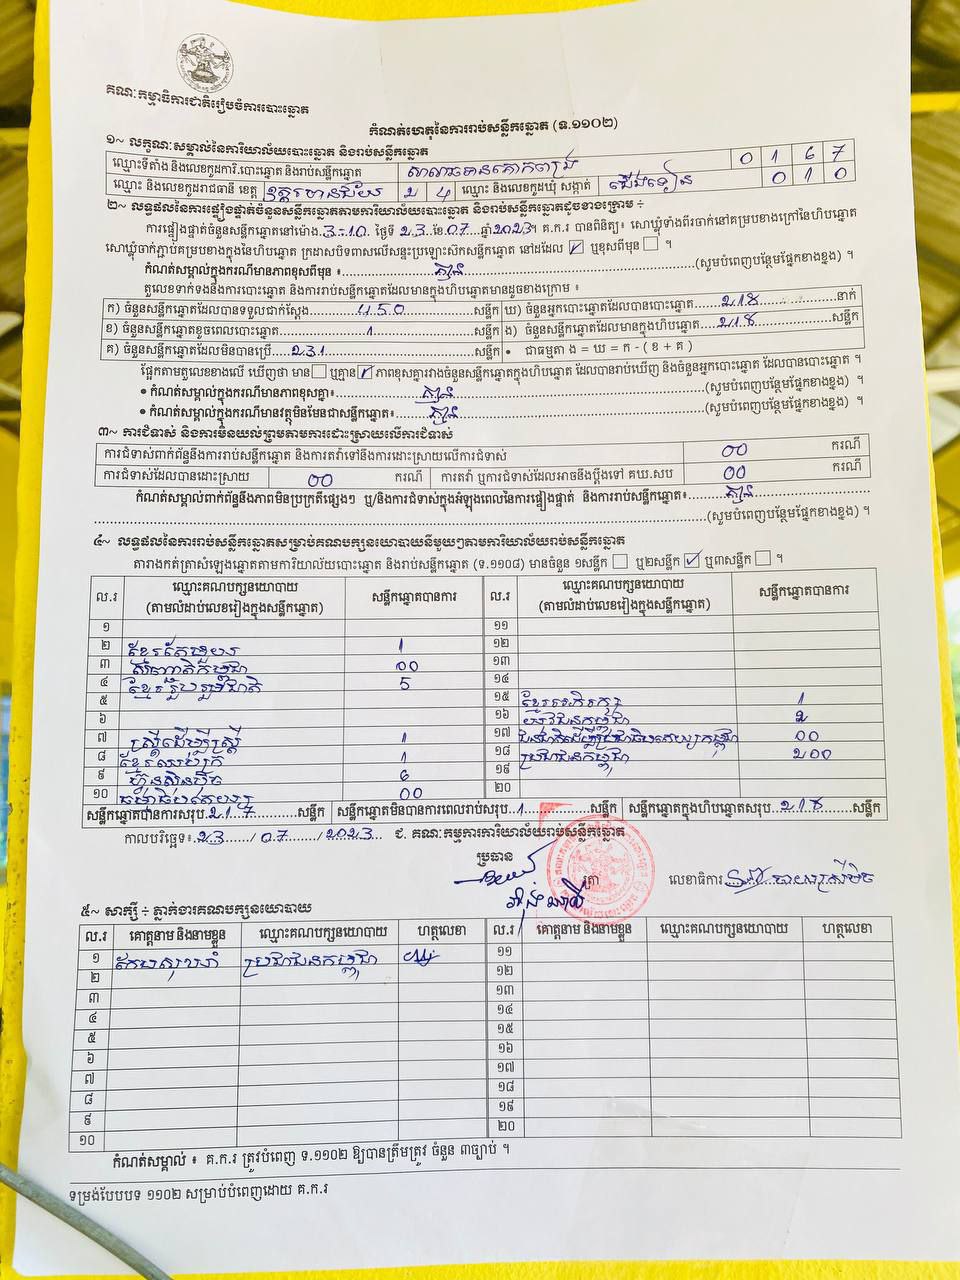 គណៈកម្មាធិការជាតិរៀបចំការបោះឆ្នោត
កំណត់ហេតុនៃការរាប់សន្លឹកឆ្នោត (ទ.១១០២)
១~ លក្ខណៈសម្គាល់នៃការិយាល័យបោះឆ្នោត និងរាប់សន្លឹកឆ្នោត
ឈ្មោះទីតាំង និងលេខកូដការិ.បោះឆ្នោត និងរាប់សន្លឹកឆ្នោត 0 1 6 7
ឈ្មោះ និងលេខកូដរាជធានី ខេត្ត ឧត្តរមានជ័យ 2 4 ឈ្មោះ និងលេខកូដឃុំ សង្កាត់ ជើងទៀន 0 1 0
២~ លទ្ធផលនៃការផ្ទៀងផ្ទាត់ចំនួនសន្លឹកឆ្នោតតាមការិយាល័យបោះឆ្នោត និងរាប់សន្លឹកឆ្នោតដូចខាងក្រោម ÷
ការផ្ទៀងផ្ទាត់ចំនួនសន្លឹកឆ្នោតនៅម៉ោង 3-10 ថ្ងៃទី 23 ខែ 07 ឆ្នាំ 2023 ។ គ.ក.រ បានពិនិត្យ៖ សោឃ្លុំទាំងពីរចាក់នៅគម្របខាងក្រៅនៃហិបឆ្នោត
សោឃ្លុំចាក់ភ្ជាប់គម្របខាងក្នុងនៃហិបឆ្នោត ក្រដាសបិទពាសលើសន្ទះប្រឡោះស៊កសន្លឹកឆ្នោត នៅដដែល ☑ ឬខុសពីមុន ☐ ។
កំណត់សម្គាល់ក្នុងករណីមានភាពខុសពីមុន ៖ គ្មាន (សូមបំពេញបន្ថែមផ្នែកខាងខ្នង) ។
តួលេខទាក់ទងនឹងការបោះឆ្នោត និងការរាប់សន្លឹកឆ្នោតដែលមានក្នុងហិបឆ្នោតមានដូចខាងក្រោម ៖
ក) ចំនួនសន្លឹកឆ្នោតដែលបានទទួលជាក់ស្តែង 450 សន្លឹក ឃ) ចំនួនអ្នកបោះឆ្នោតដែលបានបោះឆ្នោត 218 នាក់
ខ) ចំនួនសន្លឹកឆ្នោតខូចពេលបោះឆ្នោត 1 សន្លឹក ង) ចំនួនសន្លឹកឆ្នោតដែលមានក្នុងហិបឆ្នោត 218 សន្លឹក
គ) ចំនួនសន្លឹកឆ្នោតដែលមិនបានប្រើ 231 សន្លឹក • ជាធម្មតា ង = ឃ = ក - ( ខ + គ )
ផ្អែកតាមតួលេខខាងលើ ឃើញថា មាន ☐ ឬគ្មាន ☑ ភាពខុសគ្នារវាងចំនួនសន្លឹកឆ្នោតក្នុងហិបឆ្នោត ដែលបានរាប់ឃើញ និងចំនួនអ្នកបោះឆ្នោត ដែលបានបោះឆ្នោត ។
• កំណត់សម្គាល់ក្នុងករណីមានភាពខុសគ្នា៖ គ្មាន (សូមបំពេញបន្ថែមផ្នែកខាងខ្នង) ។
• កំណត់សម្គាល់ក្នុងករណីមានវត្ថុមិនមែនជាសន្លឹកឆ្នោត៖ គ្មាន (សូមបំពេញបន្ថែមផ្នែកខាងខ្នង) ។
៣~ ការជំទាស់ និងការមិនយល់ព្រមតាមការដោះស្រាយលើការជំទាស់
ការជំទាស់ពាក់ព័ន្ធនឹងការរាប់សន្លឹកឆ្នោត និងការតវ៉ាទៅនឹងការដោះស្រាយលើការជំទាស់ 00 ករណី
ការជំទាស់ដែលបានដោះស្រាយ 00 ករណី ការតវ៉ា ឬការជំទាស់ដែលអាចនឹងប្តឹងទៅ គឃ.សប 00 ករណី
កំណត់សម្គាល់ពាក់ព័ន្ធនឹងភាពមិនប្រក្រតីផ្សេងៗ ឬ/និងការជំទាស់ក្នុងអំឡុងពេលនៃការផ្ទៀងផ្ទាត់ និងការរាប់សន្លឹកឆ្នោត៖ គ្មាន
(សូមបំពេញបន្ថែមផ្នែកខាងខ្នង) ។
៤~ លទ្ធផលនៃការរាប់សន្លឹកឆ្នោតសម្រាប់គណបក្សនយោបាយនីមួយៗតាមការិយាល័យរាប់សន្លឹកឆ្នោត
តារាងកត់ត្រាសំឡេងឆ្នោតតាមការិយាល័យបោះឆ្នោត និងរាប់សន្លឹកឆ្នោត (ទ.១១០៨) មានចំនួន ១សន្លឹក ☐ ឬ២សន្លឹក ☑ ឬ៣សន្លឹក ☐ ។
ល.រ ឈ្មោះគណបក្សនយោបាយ (តាមលំដាប់លេខរៀងក្នុងសន្លឹកឆ្នោត) សន្លឹកឆ្នោតបានការ ល.រ ឈ្មោះគណបក្សនយោបាយ (តាមលំដាប់លេខរៀងក្នុងសន្លឹកឆ្នោត) សន្លឹកឆ្នោតបានការ
១ ១១
២ ខ្មែរតែមួយ 1 ១២
៣ 00 ១៣
៤ ខ្មែររួបរួមជាតិ 5 ១៤
៥ ១៥ ខ្មែរអភិរក្ស 1
៦ ១៦ យុវជនកម្ពុជា 2
៧ ស្ត្រីដើម្បីស្ត្រី 1 ១៧ ជនជាតិដើម្បីប្រជាធិបតេយ្យកម្ពុជា 00
៨ ខ្មែរឈប់ក្រ 1 ១៨ ប្រជាជនកម្ពុជា 200
៩ ហ៊្វុនស៊ិនប៉ិច 6 ១៩
១០ ធម្មាធិបតេយ្យ 00 ២០
សន្លឹកឆ្នោតបានការសរុប 217 សន្លឹក សន្លឹកឆ្នោតមិនបានការពេលរាប់សរុប 1 សន្លឹក សន្លឹកឆ្នោតក្នុងហិបឆ្នោតសរុប 218 សន្លឹក
កាលបរិច្ឆេទ៖ 23 / 07 / 2023 ជ. គណៈកម្មការការិយាល័យរាប់សន្លឹកឆ្នោត
ប្រធាន
ត្រា លេខាធិការ
៥~ សាក្សី ÷ ភ្នាក់ងារគណបក្សនយោបាយ
ល.រ គោត្តនាម និងនាមខ្លួន ឈ្មោះគណបក្សនយោបាយ ហត្ថលេខា ល.រ គោត្តនាម និងនាមខ្លួន ឈ្មោះគណបក្សនយោបាយ ហត្ថលេខា
១ ប្រជាជនកម្ពុជា ១១
២ ១២
៣ ១៣
៤ ១៤
៥ ១៥
៦ ១៦
៧ ១៧
៨ ១៨
៩ ១៩
១០ ២០
កំណត់សម្គាល់ ៖ គ.ក.រ ត្រូវបំពេញ ទ.១១០២ ឱ្យបានត្រឹមត្រូវ ចំនួន ៣ច្បាប់ ។
ទម្រង់បែបបទ ១១០២ សម្រាប់បំពេញដោយ គ.ក.រ